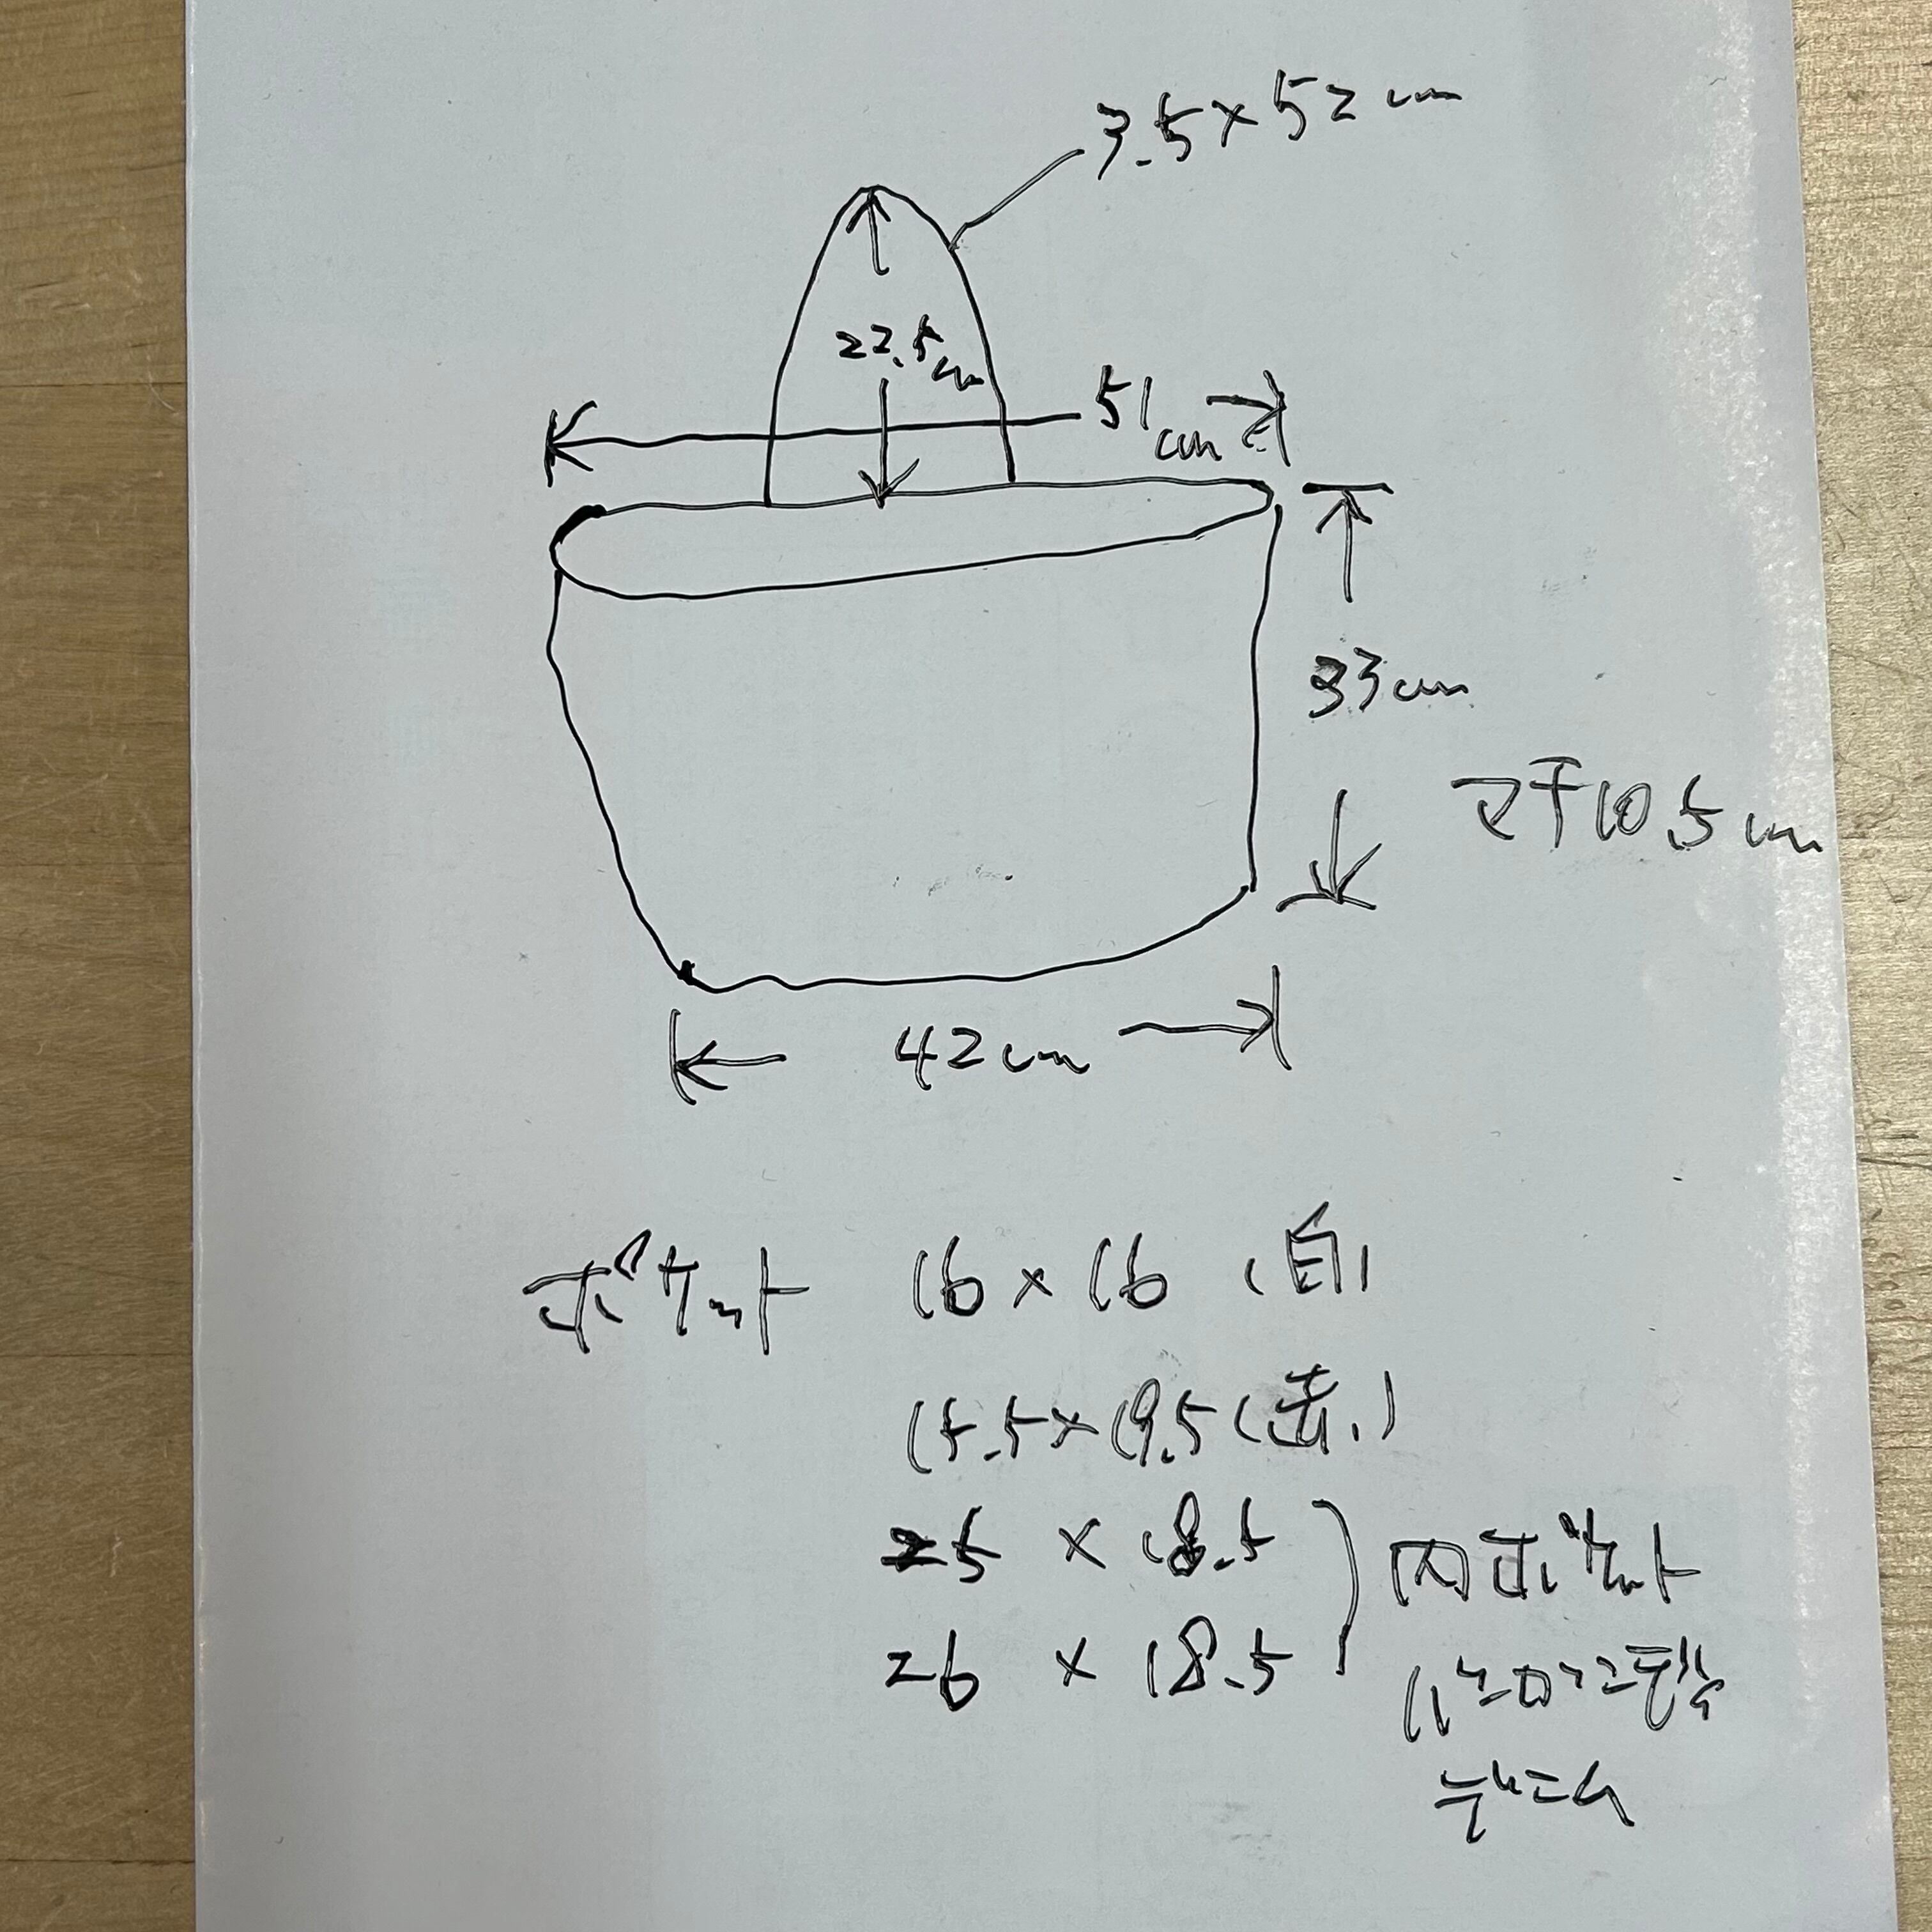 3.5×52cm
22.5cm
51cm
33cm
マチ10.5cm
42cm
ポケット 16×16 (自)
15.5×19.5(赤)
25 × 18.5
26 × 18.5
内ポケット
デニム